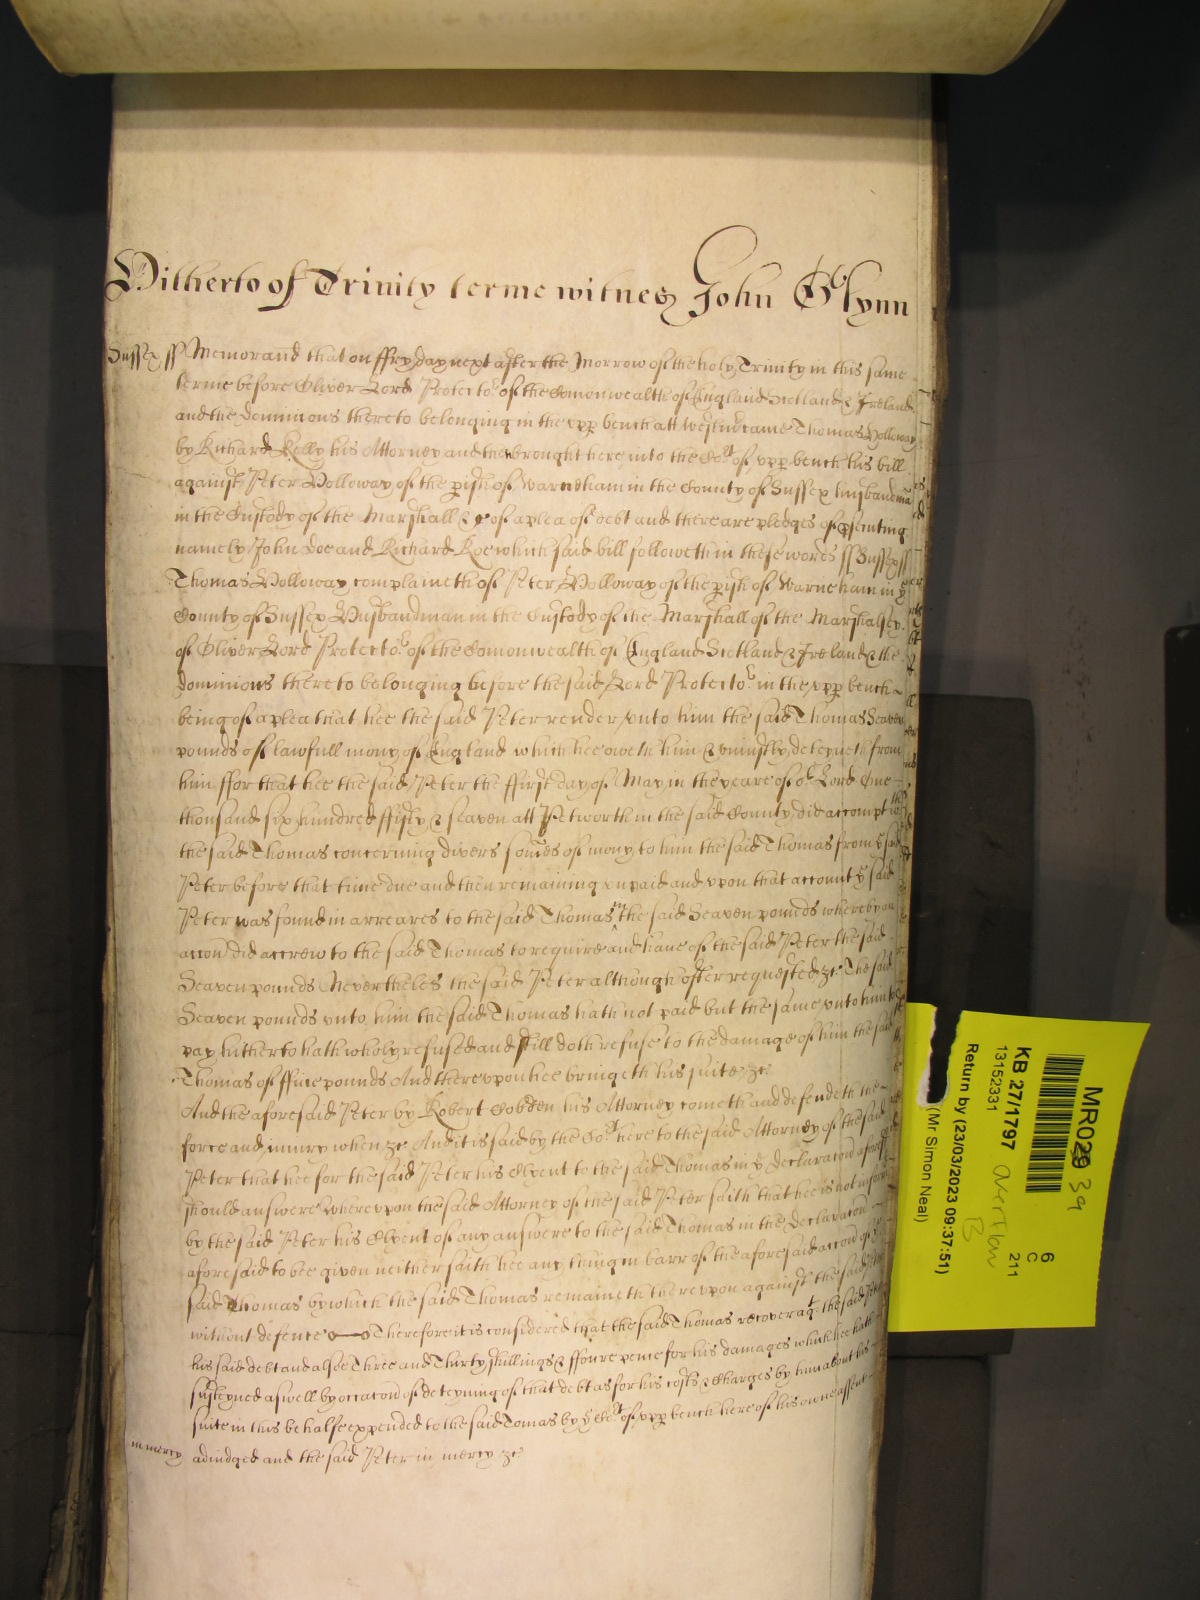 Hitherto of Trinity terme witnes John Glynn
Sussex ss Memorand that on ffryday next after the Morrow of the holy Trinity in this same
terme before Oliver Lord Protector of the Comonwealth of England Scotland & Ireland
and the dominions thereto belonging in the upp bench att Westm came Thomas Holloway
by Richard Kelly his Attorney and then brought here into the Cort of upp bench his bill
against Peter Holloway of the pish of Warneham in the County of Sussex husbandman
in the Custody of the Marshall &c of a plea of debt and there are pledges of psenting
namely John Doe and Richard Roe which said bill followeth in these words ss Sussex ss
Thomas Holloway complaineth of Peter Holloway of the pish of Warneham in ye
County of Sussex Husbandman in the Custody of the Marshall of the Marshalsey
of Oliver Lord Protector of the Comonwealth of England Scotland & Ireland & the
dominions thereto belonging before the said Lord Protector in the upp bench
being of a plea that hee the said Peter render unto him the said Thomas Seaven
pounds of lawfull mony of England which hee oweth him & uniustly deteyneth from
him ffor that hee the said Peter the ffirst day of May in the yeare of or Lord One
thousand six hundred ffifty & seaven att Petworth in the said County did accompt with
the said Thomas concerning divers somes of mony to him the said Thomas from ye said
Peter before that time due and then remaining unpaid and upon that account ye said
Peter was found in arreares to the said Thomas in the said Seaven pounds whereby an
accon did accrew to the said Thomas to require and have of the said Peter the said
Seaven pounds Nevertheles the said Peter although often requested &c The said
Seaven pounds unto him the said Thomas hath not paid but the same unto him to
pay hitherto hath wholy refused and still doth refuse to the damage of him the said
Thomas of ffive pounds And thereupon hee bringeth his suite &c
And the aforesaid Peter by Robert Cobden his Attorney cometh and defendeth the
force and iniury when &c And it is said by the Cort here to the said Attorney of the said
Peter that hee for the said Peter his Clyent to the said Thomas in ye declaracon aforesd
should answere Whereupon the said Attorney of the said Peter saith that hee is not informed
by the said Peter his Clyent of any answere to the said Thomas in the declaracon
aforesaid to bee given neither saith hee any thing in barr of the aforesaid accon of ye
said Thomas by which the said Thomas remaineth thereupon against the said Peter
without defence Therefore it is considered that the said Thomas recover agt the said Peter
his said debt and alsoe Three and Thirty shillings & ffoure pence for his damages which hee hath
susteyned aswell by occacon of deteyning of that debt as for his costs & charges by him about his
suite in this behalfe expended to the said Tomas by ye Cort of upp bench here of his owne assent
in mercy adiudged and the said Peter in mercy &c
MR029 39
KB 27/1797
13152331
overflow
B
6
C
211
Return by (23/03/2023 09:37:51)
(Mr Simon Neal)